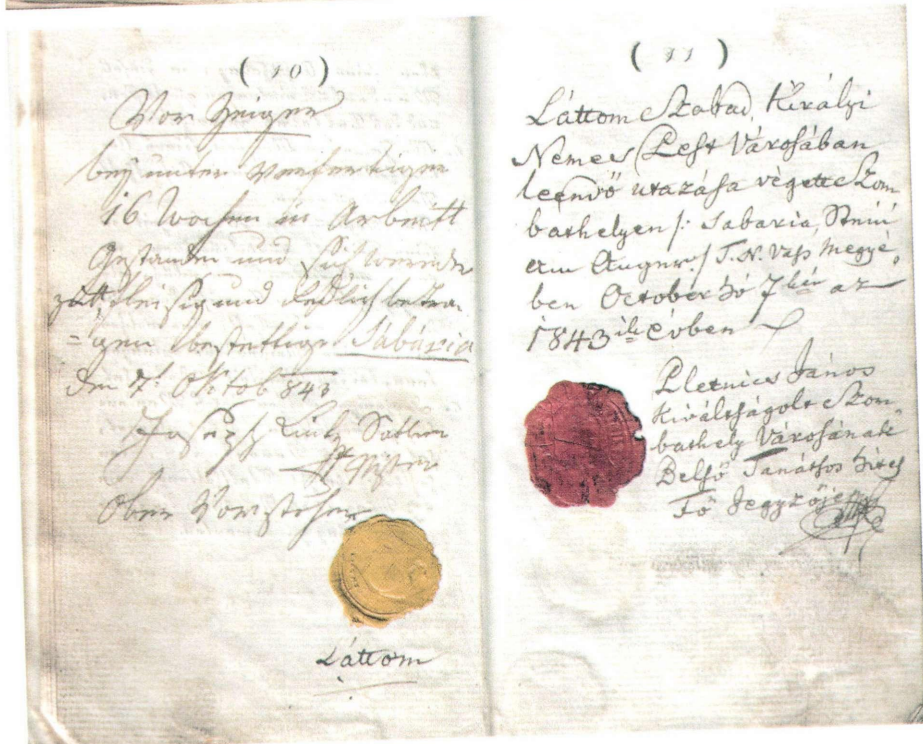 ( 10 )
Vor Zeiger
bey unter Verfertigen
16 Wochen in Arbeitt
Gestanden und sich
fleisig und Redlich betra-
=gen bestettige Sabaria
den 7t Oktob 843
Joseph Sattler
Meister
Ober Vorsteher
Láttom
( 11 )
Láttom Szabad Királyi
Nemes Pest Városában
leendő utazása végett Szom
bathelyen /: Sabaria, Stein
am Anger :/ T. N. Vass Megyé,
ben October hó 7kén az
1843ik évben
Pletnics János
Kiváltságolt Szom
bathely Városának
Belső Tanátsos Hites
Fő Jegyzője